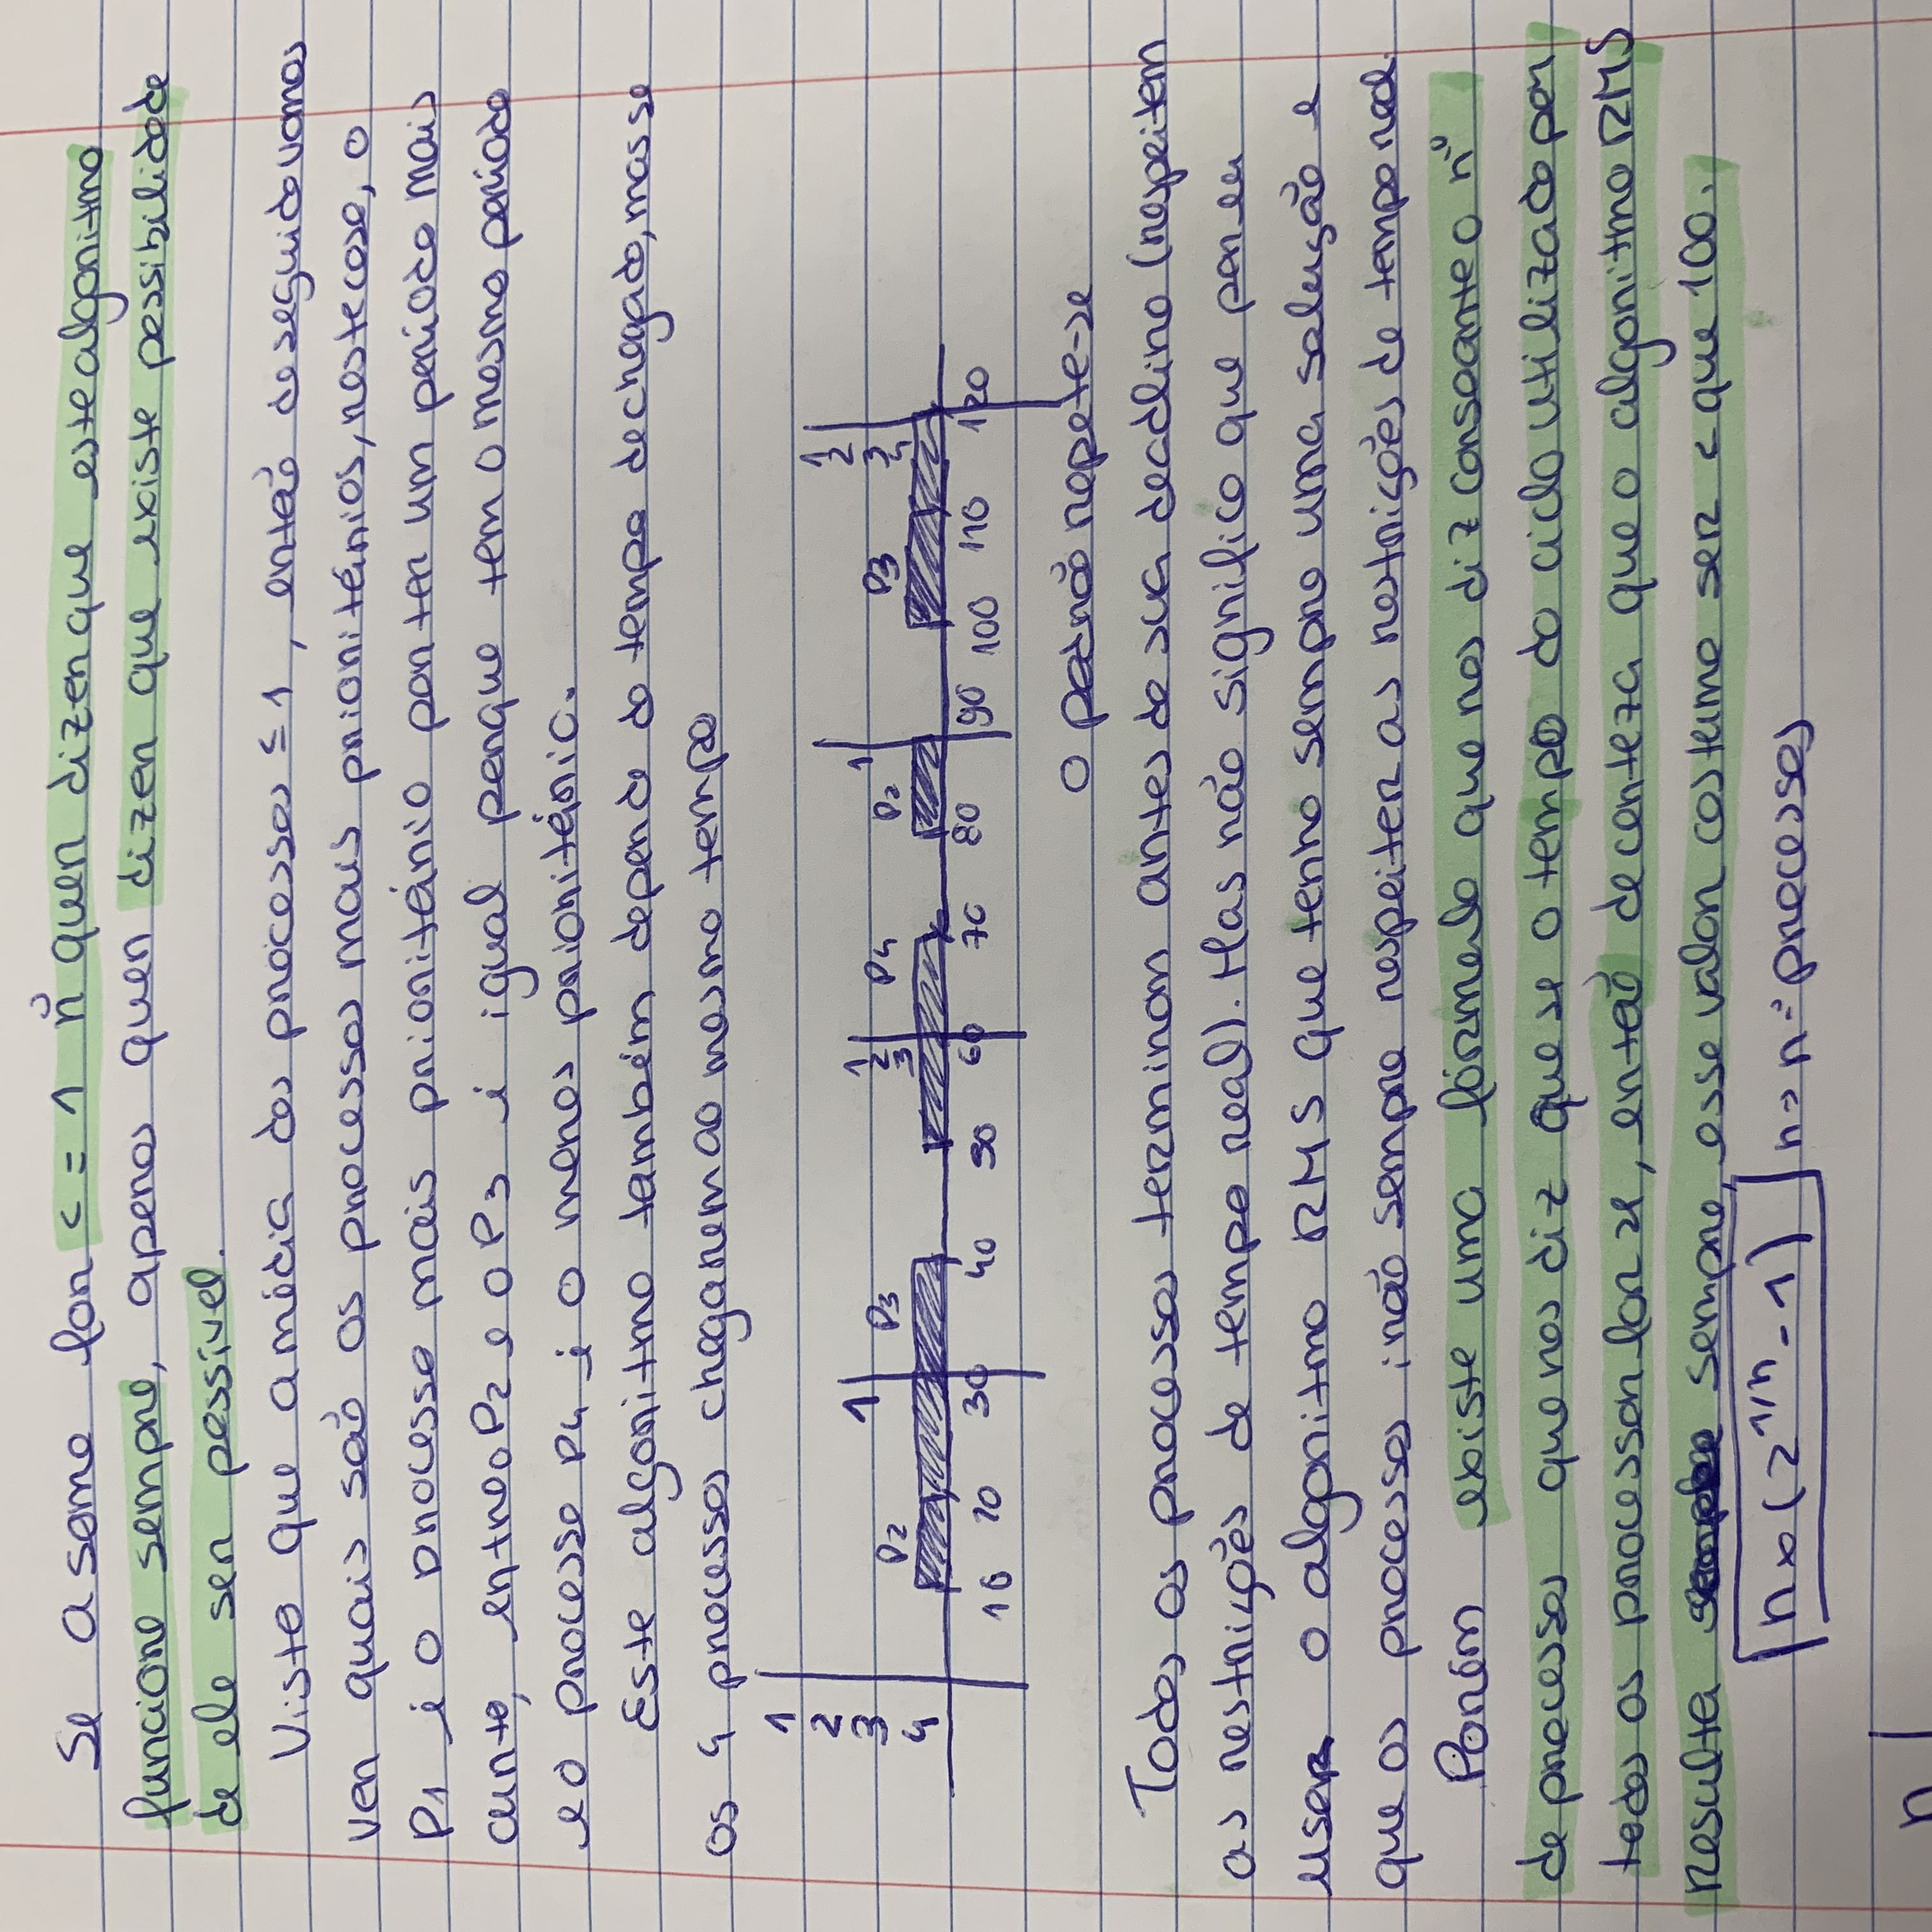 Se a soma for <= 1 ñ quer dizer que este algoritmo
funcione sempre, apenas quer dizer que existe possibilidade
de ele ser possível.
Visto que a média dos processos ≤ 1, então de seguida vamos
ver quais são os processos mais prioritários, neste caso, o
P1 é o processo mais prioritário por ter um período mais
curto, entre o P2 e o P3 é igual porque tem o mesmo período
e o processo P4 é o menos prioritário.
Este algoritmo também depende do tempo de chegada, mas se
os 4 processos chegarem ao mesmo tempo
1
2
3
4
P2 1 P3 1 2 3 P4 P2 1 P3 1 2 3 4
10 20 30 40 50 60 70 80 90 100 110 120
O padrão repete-se
Todos os processos terminam antes de sua deadline (respeitem
as restrições de tempo real). Mas não significa que por eu
usar o algoritmo RMS que tenho sempre uma solução e
que os processos irão sempre respeitar as restrições de tempo real.
Porém existe uma fórmula que nos diz consoante o nº
de processos que nos diz que se o tempo do ciclo utilizado por
todos os processon for x, então de certeza que o algoritmo RMS
resulta sempre, esse valor costuma ser < que 100.
n × (2^1/n - 1) n → nº processos
n